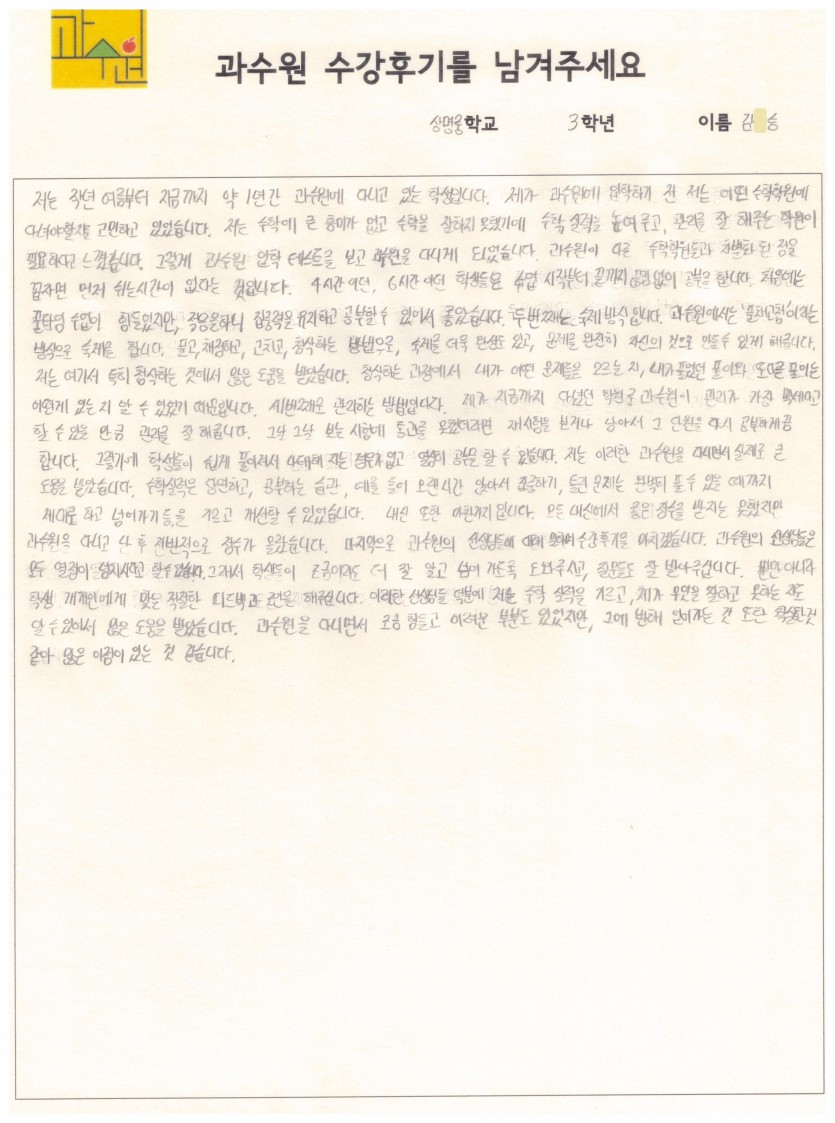 과수원
과수원 수강후기를 남겨주세요
상명중학교 3학년 이름 김 승
저는 작년 여름부터 지금까지 약 1년간 과수원에 다니고 있는 학생입니다. 제가 과수원에 입학하기 전 저는 어떤 수학학원에
다녀야할지를 고민하고 있었습니다. 저는 수학에 큰 흥미가 없고 수학을 잘하지 못했기에 수학 실력을 높여주고, 관리를 잘 해주는 학원이
필요하다고 느꼈습니다. 그렇게 과수원 입학 테스트를 보고 과수원을 다니게 되었습니다. 과수원이 다른 수학학원들과 차별화 된 점을
꼽자면 먼저 쉬는시간이 없다는 것입니다. 4시간이던, 6시간이던 학생들은 수업 시작부터 끝까지 끊임없이 공부를 합니다. 처음에는
풀타임 수업이 힘들었지만, 적응을하니 집중력을 유지하고 공부할 수 있어서 좋았습니다. 두번째는 숙제 방식입니다. 과수원에서는 '풀채고첨'이라는
방식으로 숙제를 합니다. 풀고, 채점하고, 고치고, 첨삭하는 방법으로, 숙제를 더욱 완성도 있고, 문제를 완전히 자신의 것으로 만들 수 있게 해줍니다.
저는 여기서 특히 첨삭하는 것에서 많은 도움을 받았습니다. 첨삭하는 과정에서 내가 어떤 문제들을 모르는지, 내가 풀었던 풀이와 또다른 풀이는
어떻게 있는지 알 수 있었기 때문입니다. 세번째로 관리하는 방법입니다. 제가 지금까지 다녔던 학원중 과수원이 관리가 가장 빡세다고
할 수 있을 만큼 관리를 잘 해줍니다. 그날 그날 보는 시험에 통과를 못했더라면 재시험을 보거나 남아서 그 단원을 다시 공부하게끔
합니다. 그렇기에 학생들이 쉽게 풀어져서 나태해 지는 경우가 없고 열심히 공부를 할 수 있습니다. 저는 이러한 과수원을 다니면서 실제로 큰
도움을 받았습니다. 수학실력은 당연하고, 공부하는 습관, 예를 들어 오랜시간 앉아서 집중하기, 틀린 문제는 완벽히 풀 수 있을 때까지
제대로 하고 넘어가기 등을 기르고 개선할 수 있었습니다. 내신 또한 마찬가지입니다. 모든 내신에서 좋은 점수를 받지는 못했지만
과수원을 다니고 난 후 전반적으로 점수가 올랐습니다. 마지막으로 과수원의 선생님들에 대해 말하며 수강후기를 마치겠습니다. 과수원의 선생님들은
모두 열정이 넘치시다고 할 수 있습니다. 그래서 학생들이 조금이라도 더 잘 알고 넘어 가도록 도와주시고, 질문들도 잘 받아주십니다. 뿐만 아니라
학생 개개인에게 맞는 적절한 피드백과 조언을 해주십니다. 이러한 선생님들 덕분에 저는 수학 실력을 기르고, 제가 무엇을 잘하고 못하는 지도
알 수 있어서 많은 도움을 받았습니다. 과수원을 다니면서 조금 힘들고 어려운 부분도 있었지만, 그에 반해 얻어가는 것 또한 확실한것
같아 많은 이점이 있는 것 같습니다.